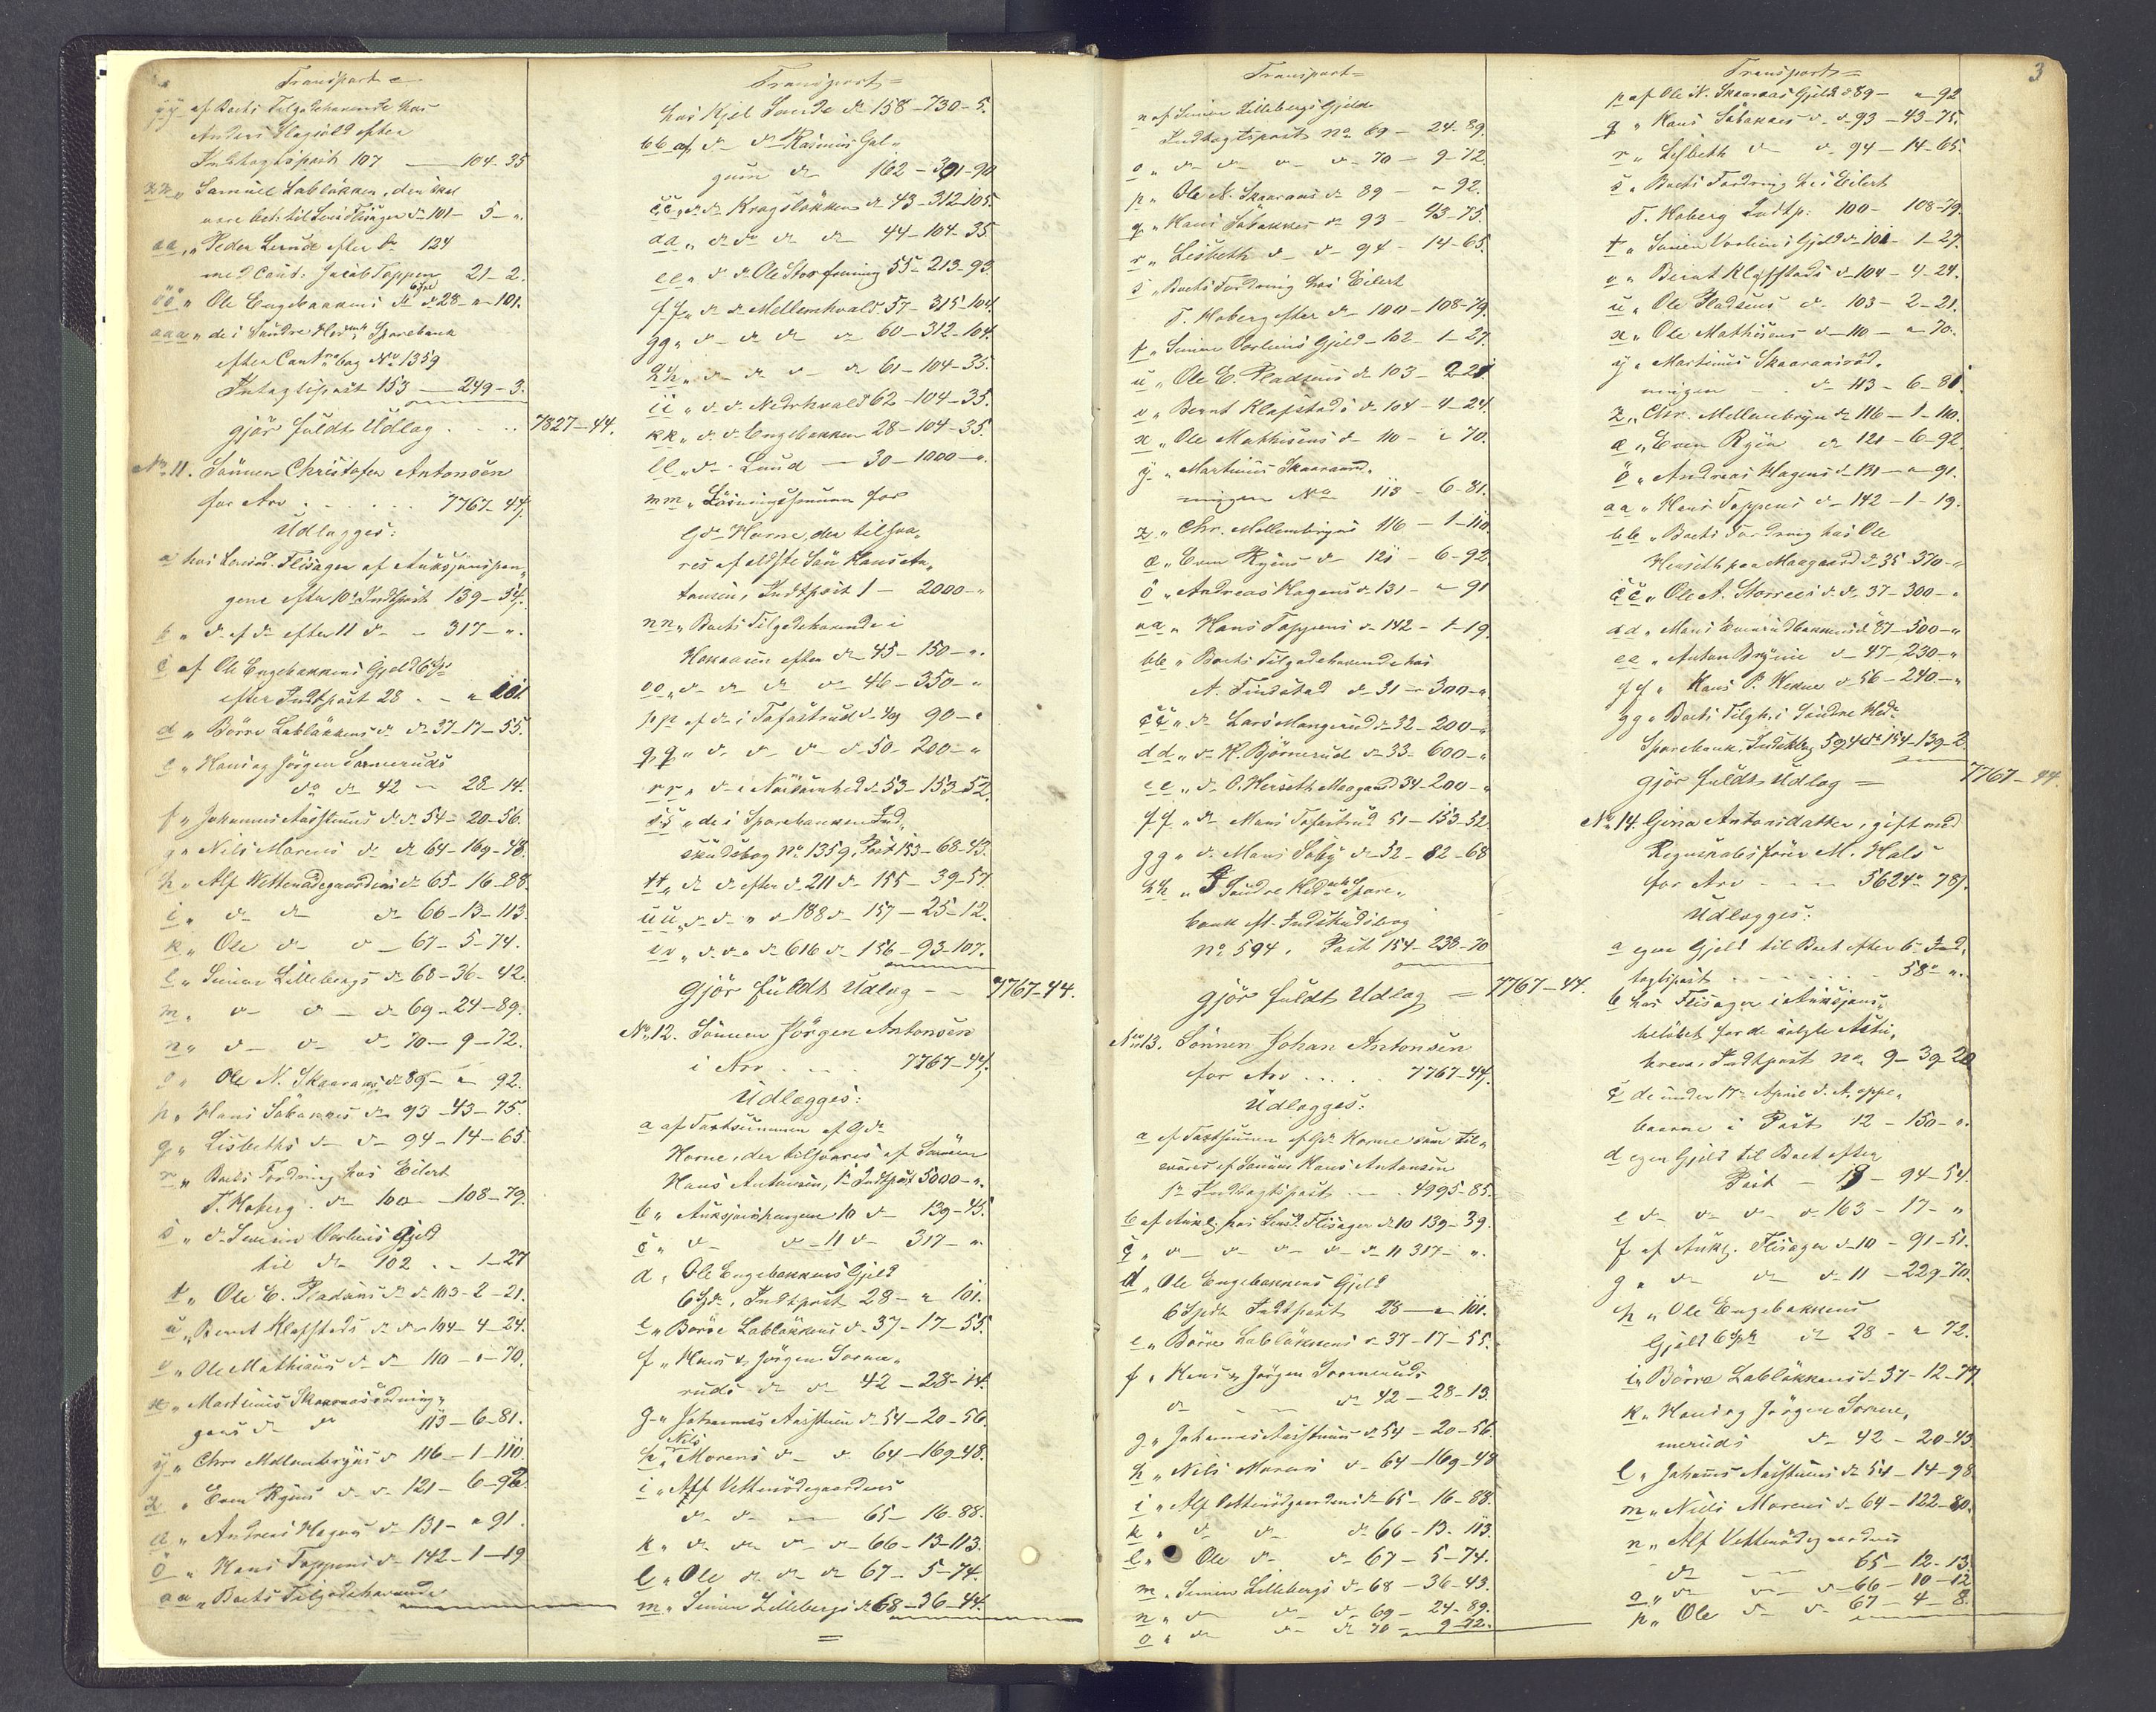 Transport =
yy af Boets Tilgodehavende hos
Anders Slagsold efter
Indtægtspost 107 — 104-35
zz „ Samuel Labløkken, den skal
være bet. til Lensd. Flisager do 101 - 5 - „.
ææ „ Peder Lunde efter do 124
med Caut. Jacob Toppen 21 - 2.
øø „ Ole Engebakkens do 6 Spd do 28 - „ - 101.
aaa „ do i Søndre Hedmk Sparebank
efter Contrabog No 1359
Indtægtspost 153 — 249 - 3.
gjør fuldt Udlæg . . . 7827-44.
No 11. Sønnen Christofer Antonsen
for Arv . . . . . 7767-44.
Udlægges:
a hos Lensd. Flisager af Auksjonspen-
gene efter 10de Indtpost 139 - 34.
b „ do af do efter 11 do - 317 - „.
c af Ole Engebakkens Gjeld 6 Spd
efter Indtpost 28 - „ 101
d „ Børre Labløkkens do do 37 - 17 - 55.
e „ Hans og Jørgen Sormeruds
do do 42 — 28 - 14.
f „ Johannes Aasstuens do do 54 - 20 - 56.
g „ Nils Morens do do 64 - 169 - 48.
h „ Alf Vettenødegaardens do 65 - 16 - 88.
i „ do do do 66 - 13 - 113.
k „ Ole do do 67 - 5 - 74.
l „ Simen Lillebergs do 68 - 36 - 42.
m „ do do do 69 - 24 - 89.
n „ do do do 70 - 9 - 72.
o „ Ole N. Skaaraas do 89 - „ - 92.
p „ Hans Søbakkes do 93 - 43 - 75.
q „ Lisbeths do do 94 - 14 - 65
r „ Boets Fordring hos Eilert
T. Hoberg do 100 - 108 - 79.
s „ do Simen Vorliens Gjeld
til do 102 . . 1 - 27
t „ Ole E. Pladsens do do 103 - 2 - 21.
u „ Bernt Klafstads do do 104 - 4 - 24.
v „ Ole Mathisens do do 110 - „ - 70.
x „ Martinus Skaaraasrødnin-
gens do do 113 - 6 - 81.
y „ Chr. Mellembryns do 116 - 1 - 110.
z „ Even Ryens do do 121 - 6 - 92.
æ „ Andreas Hagens do 131 - „ 91.
ø „ Hans Toppens do 142 - 1 - 19
aa „ Boets Tilgodehavende
Transport =
hos Kjel Sande do 158 - 730 - 5.
bb af do do Rasmus Gal-
gum do 162 - 301 - 90
cc „ do do Kragsløkken do 43 - 312 105.
dd „ do do do do 44 - 104 - 35.
ee „ do do Ole Storfening 55 - 213 - 93.
ff „ do do Mellemkvald 57 - 315 104.
gg „ do do do do 60 - 312 - 104.
hh „ do do do do 61 - 104 - 35.
ii „ do do Nedrkvald 62 - 104 - 35.
kk „ do do Engebakken 28 - 104 - 35.
ll „ do - Lund — 30 - 1000 - „.
mm „ Løsningssummen for
Gdn Horne, der tilsva-
res af ældste Søn Hans An-
tonsen, Indtpost 1 - 2000 - „
nn „ Boets Tilgodehavende i
Hokaasen efter do 45 - 150 - „.
oo „ do do do do 46 - 350 - „
pp af do i Tofastrud do 49 90 - „
qq „ do do do do 50 - 200 - „
rr „ do i do 53 - 153 - 52.
ss „ do i Sparebanken Ind-
skudsbog No 1359, Post 153 - 68 - 43.
tt „ do do efter do 211 do 155 - 39 - 57.
uu „ do do „ do 188 do 157 - 25 - 12.
vv „ do do „ do 616 do 156 - 93 - 107.
gjør fuldt Udlæg — 7767-44.
No 12. Sønnen Jørgen Antonsen
i Arv . . . 7767-44.
Udlægges:
a af Taxtsummen af Gdn
Horne, der tilsvares af Sønnen
Hans Antonsen, 1te Indtpost 5000 - „.
b „ Auksjonspengene 10 do 139 - 45.
c „ do do 11 do 317 - „.
d „ Ole Engebakkens Gjeld
6 Spd, Indtpost 28 - „ 101.
e „ Børre Labløkkens do 37 - 17 - 55.
f „ Hans & Jørgen Sorme-
ruds do do 42 - 28 - 14.
g „ Johannes Aasstuen do 54 - 20 - 56.
h „ Nils Morens do do 64 - 169 - 48.
i „ Alf Vettenødegaardens
do do — 65 - 16 - 88.
k „ do do do do 66 - 13 - 113.
l „ Ole do do do 67 - 5 - 74.
m „ Simen Lillebergs do 68 - 36 - 44.
Transport =
n af Simen Lillebergs Gjeld
Indtægtspost No 69 - 24 - 89.
o „ do do do do 70 - 9 - 72.
p „ Ole N. Skaaraas do 89 - „ 92.
q „ Hans Søbakkes do 93 - 43 - 75.
r „ Lisbeth do do 94 - 14 - 65.
s „ Boets Fordring hos Eilert
T. Hoberg efter do 100 - 108 - 79.
t „ Simen Vorliens Gjeld - 102 - 1 - 27.
u „ Ole E. Pladsens do 103 - 2 21.
v „ Bernt Klafstads do 104 - 4 - 24.
x „ Ole Mathisens do 110 - „ 70.
y „ Martinus Skaaraasrød-
ningen No 113 - 6 - 81.
z „ Chr. Mellembryns 116 - 1 - 110.
æ „ Even Ryens do 121 - 6 - 92.
ø „ Andreas Hagens do 131 - „ 91
aa „ Hans Toppens do 142 - 1 - 19.
bb „ Boets Tilgodehavende hos
N. Findstad do 31 - 300 - „.
cc „ do Lars Mangerud do 32 - 200 - „
dd „ do K. Bjørnerud do 33 - 600 - „
ee „ do O. Herseth Maagaard 34 - 200 - „
ff „ do Mons Tofastrud 51 - 153 - 52.
gg „ do Mons Saby do 52 - 82 - 68
hh „ I Søndre Hedmk Spare-
bank eft. Indskudsbog
No 594. Post 154 - 238 - 70
gjør fuldt Udlæg = 7767-44.
No 13. Sønnen Johan Antonsen
for Arv . . . . 7767-44.
Udlægges:
a af Taxtsummen af Gdn Horne som til-
svares af Sønnen Hans Antonsen
1te Indtægtspost . . . 4995 - 85.
b af Aukg. hos Lensd. Flisager do 10 139 - 39.
c „ do do do do do 11 317 - „.
d „ Ole Engebakkens Gjeld
6 Spd Indtpost 28 — „ 101.
e „ Børre Labløkkens do 37 - 17 - 55.
f „ Hans & Jørgen Sormeruds
do - - do 42 - 28 - 13.
g „ Johannes Aasstuens do 54 - 20 - 56
h „ Nils Morens do 64 - 169 - 48
i „ Alf Vettenødgaardens do 65 - 16 - 88.
k „ do do do 66 - 13 - 113.
l „ Ole do do 67 - 5 - 74.
m „ Simen Lillebergs do 68 - 36 - 43.
n „ do do do 69 - 24 - 89.
o „ do do do 70 - 9 - 72.
3
Transport =
p af Ole N. Skaaraas Gjeld do 89 - „ 92
q „ Hans Søbakkes do do 93 - 43 - 75.
r „ Lisbeth do do 94 - 14 - 65.
s „ Boets Fordring hos Eilert
T. Hoberg Indtp. 100 - 108 - 79.
t „ Simen Vorliens Gjeld do 101 - 1 - 27.
v „ Bernt Klafstads do 104 - 4 - 24.
u „ Ole Pladsens do 103 - 2 - 21.
x „ Ole Mathisens do 110 - „ 70.
y „ Martinus Skaaraasrød-
ningen - - do 113 - 6 - 81
z „ Chr. Mellembryn do 116 - 1 - 110.
æ „ Even Ryen do 121 - 6 - 92
ø „ Andreas Hagens do 131 - „ 91.
aa „ Hans Toppens do 142 - 1 - 19.
bb „ Boets Fordring hos Ole
Herseth paa Maagaard do 35 - 370 - „
cc „ Ole A. do do 37 - 300 - „
dd „ Mons Evensudbakken do 87 - 500 - „
ee „ Anton do 47 - 230 - „
ff „ Hans P. do 56 - 240 - „
gg „ Boets Tilgh. i Søndre Hedm.
Sparebank, Indskbog 594 do 154 - 139 - 2.
gjør fuldt Udlæg = 7767-44.
No 14. Gina Antonsdatter, gift med
Regnskabsfører M. Hals
for Arv - - - 5624 - 78.
Udlægges:
a egen Gjeld til Boet efter 6 Ind-
tægtspost - - - - - 58 - „.
b hos Flisager i Auksjons-
beløbet for de solgte Aktie-
breve, Indtpost No 9 - 39 - 20
c do under 17de April d. A. oppe-
baarne i Post 12 - 150 - „.
d egen Gjeld til Boet efter
Post - 19 - 94 - 54.
e do do do do 163 - 17 - „
f af Aukg. Flisager do 10 - 91 - 51.
g „ do do do 11 - 229 - 70.
h „ Ole Engebakkens
Gjeld 6 Spd do 28 - „ 72.
i „ Børre Labløkkens do 37 - 12 - 77
k „ Hans og Jørgen Sorme-
meruds do 42 - 20 - 43
l „ Johans Aasstuens do 54 - 14 - 98
m „ Nils Morens do 64 - 122 - 80.
n „ Alf Vettenødegaardens
do — 65 - 12 - 13.
o „ do do do 66 - 10 - 12
p „ Ole do do 67 - 4 - 8.